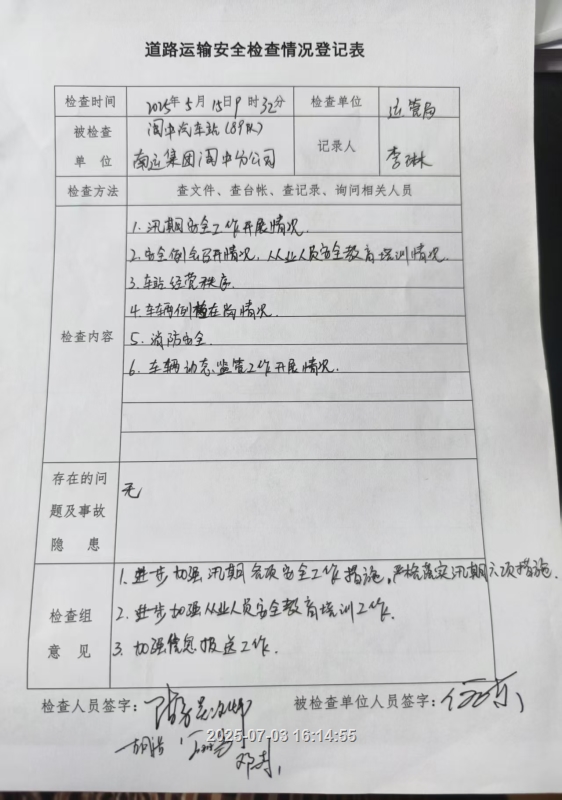 道路运输安全检查情况登记表
检查时间 2025年5月15日9时32分 检查单位 运管局
被检查 阆中汽车站(89队)
单 位 南运集团阆中分公司 记录人 李琳
检查方法 查文件、查台帐、查记录、询问相关人员
检查内容
1. 汛期安全工作开展情况.
2. 安全例会召开情况, 从业人员安全教育培训情况.
3. 车站经营秩序.
4. 车辆例检在岗情况.
5. 消防安全.
6. 车辆动态监管工作开展情况.
存在的问
题及事故
隐 患
无
检查组
意 见
1. 进步加强汛期各项安全工作措施, 严格落实汛期六项措施.
2. 进步加强从业人员安全教育培训工作.
3. 加强信息报送工作.
检查人员签字: 被检查单位人员签字:
2025-07-03 16:14:55